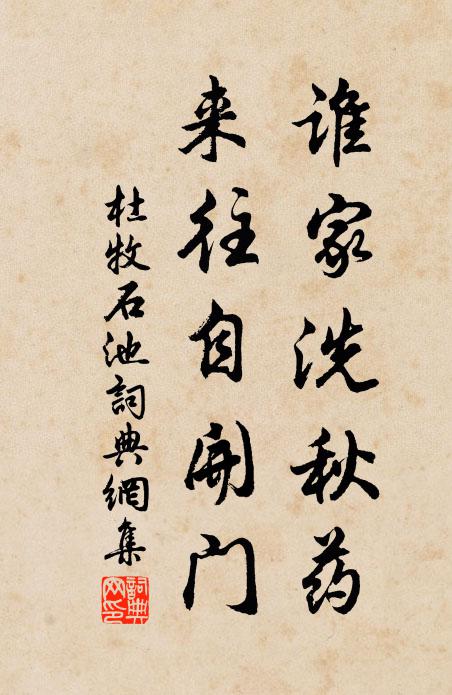 谁家洗秋药
来往自开门
杜牧石池詞典網集
詞典网印